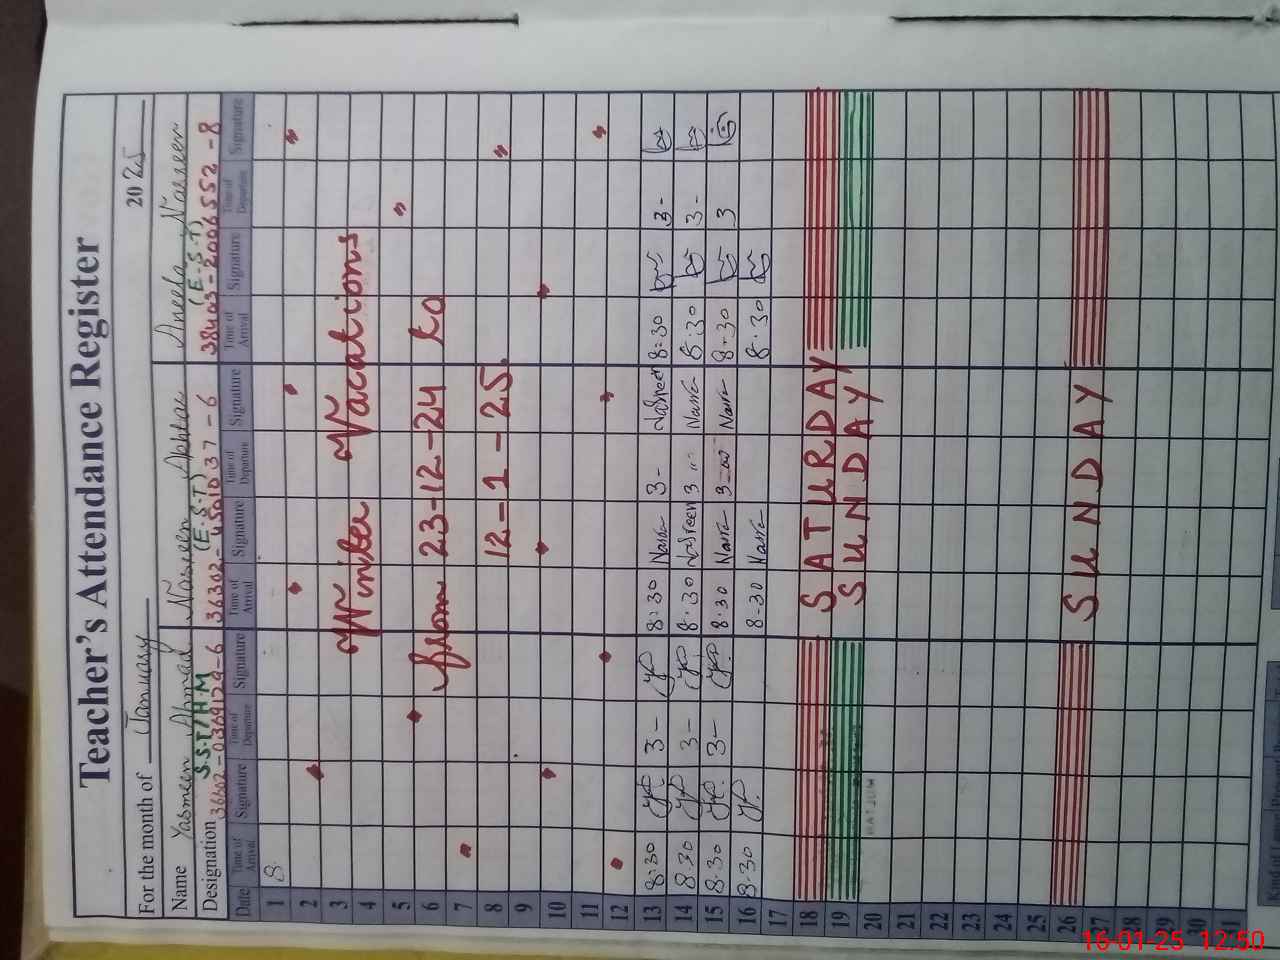 Teacher's Attendance Register
For the month of January 2025
Name Yasmeen Ahmad Nasreen Akhtar Aneela Nasreen
Designation S.S.T/H.M (E.S.T) (E.S.T)
Date Time of Arrival Signature Time of Departure Signature Time of Arrival Signature Time of Departure Signature Time of Arrival Signature Time of Departure Signature
1 8
2
3 Winter Vacations
4
5
6 from 23-12-24 to
7
8 12-1-25
9
10
11
12
13 8:30 3- 8:30 3- Nasreen 8:30 3-
14 8.30 3- 8.30 Nasreen 3 8.30 3-
15 8.30 3- 8.30 3-00 8.30 3
16 8.30 8-30 8.30
17
18 SATURDAY
19 SUNDAY
20
21
22
23
24
25
26 SUNDAY
27
28
29
30
31
16-01-25 12:50